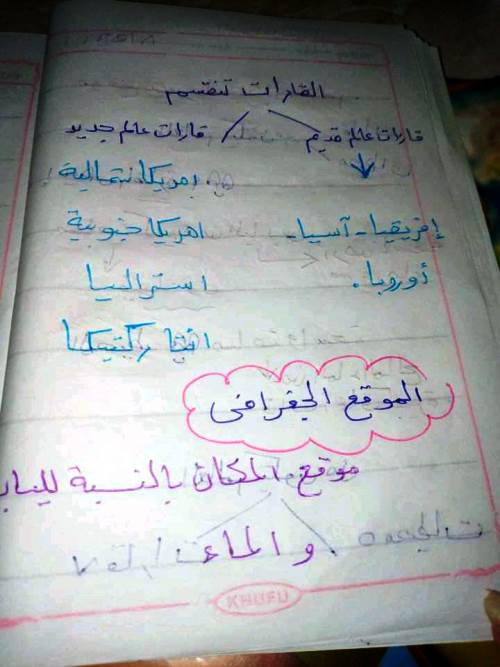 القارات تنقسم
قارات عالم قديم قارات عالم جديد
امريكا شمالية
إفريقيا - آسيا - امريكا جنوبية
أوروبا. استراليا
الموقع الجغرافى
موقع المكان بالنسبة للياب
والماء
KHUFU